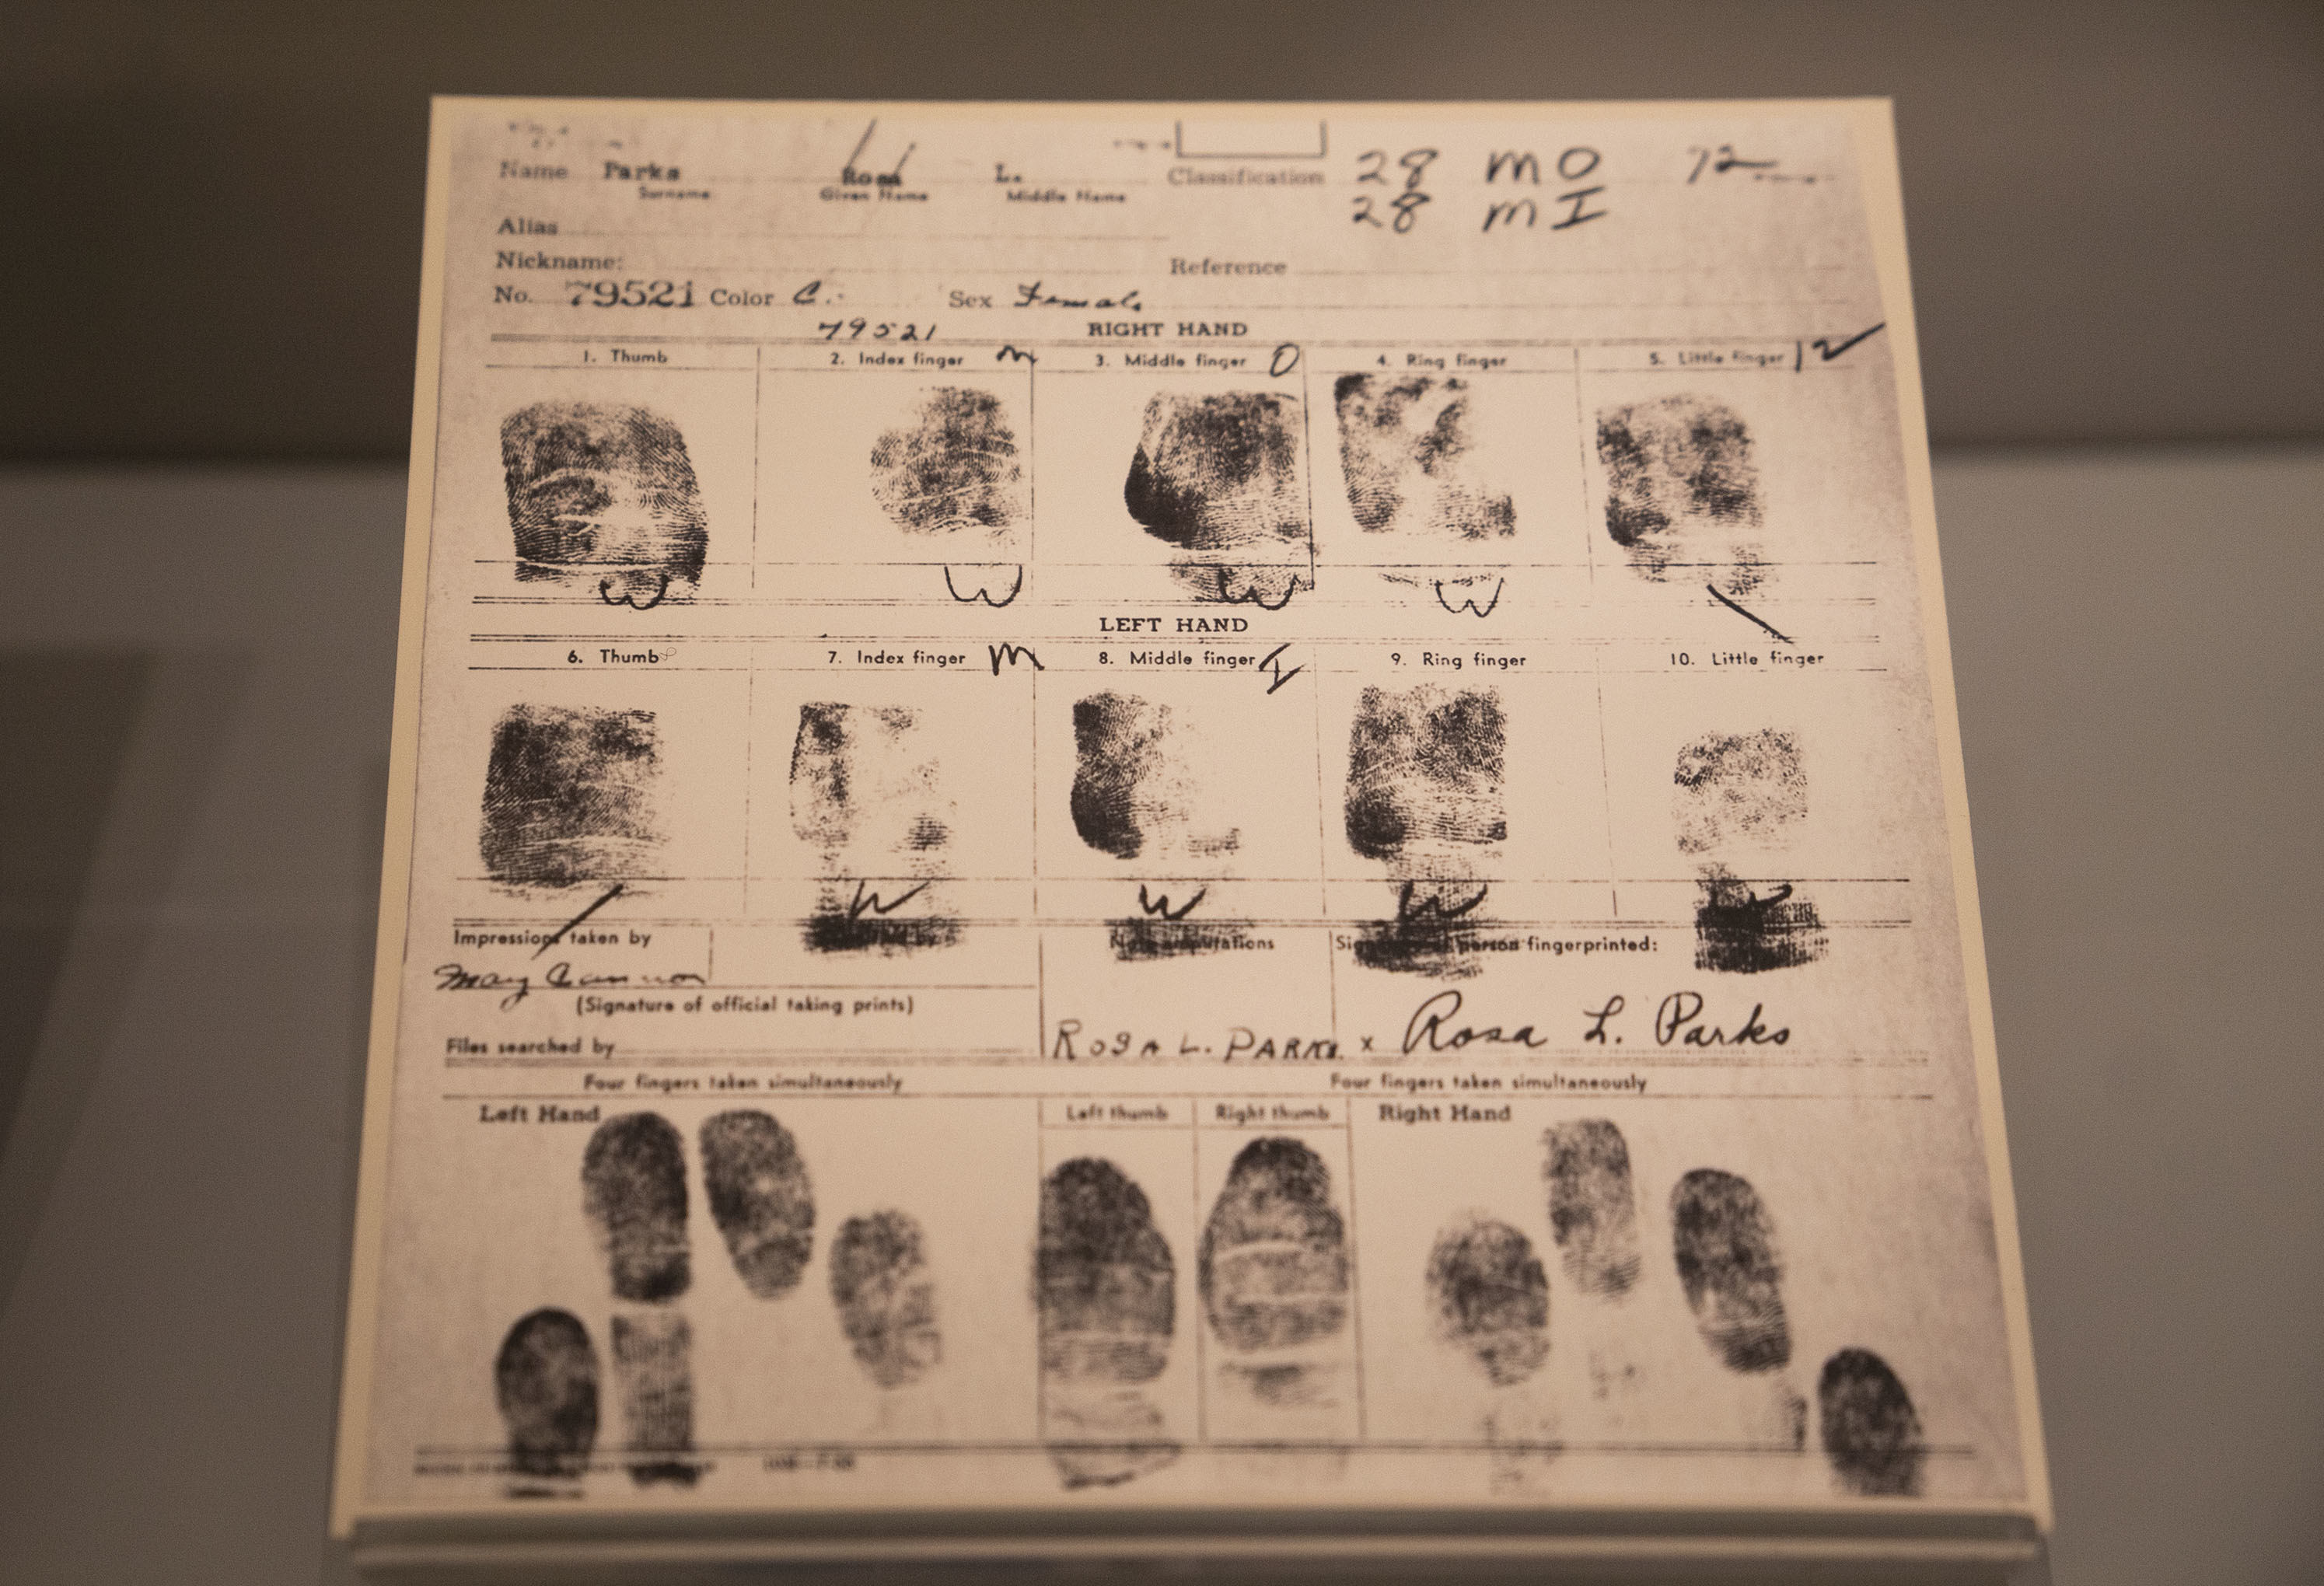 Name Parks Rosa L. Classification 28 MO 72
Surname Given Name Middle Name 28 MI
Alias
Nickname: Reference
No. 79521 Color C. Sex Female
79521 RIGHT HAND
1. Thumb 2. Index finger M 3. Middle finger O 4. Ring finger 5. Little finger 12
W W W W \
LEFT HAND
6. Thumb 7. Index finger M 8. Middle finger I 9. Ring finger 10. Little finger
/ W W W W
Impressions taken by Note amputations Signature of person fingerprinted:
Mary Cannon
(Signature of official taking prints)
ROSA L. PARKS x Rosa L. Parks
Files searched by
Four fingers taken simultaneously Four fingers taken simultaneously
Left Hand Left thumb Right thumb Right Hand